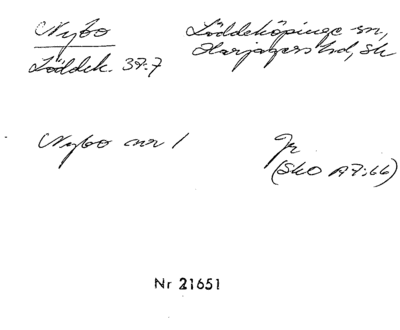 Nybo
Löddeköpinge sn,
Harjagers hd, Sk
Löddek. 37:7
Nybo nr 1
Jr
(SkO A7:66)
Nr 21651